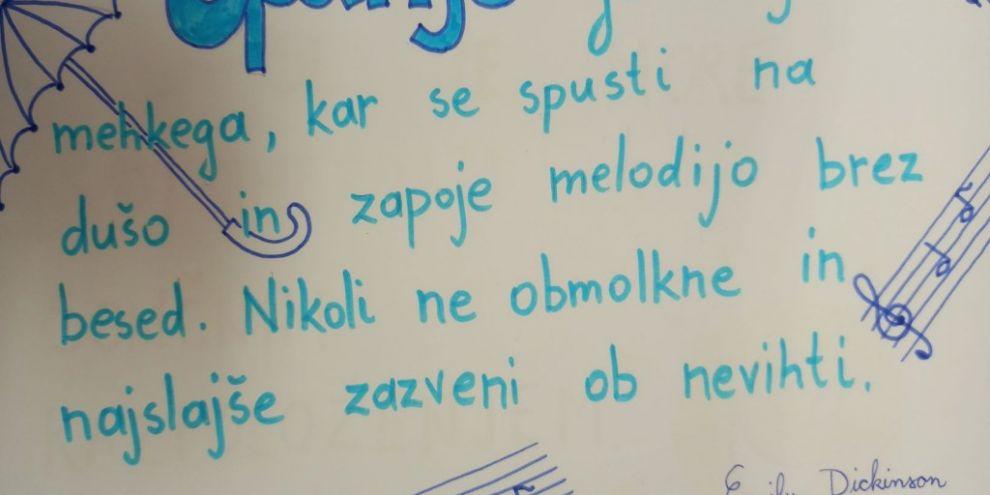 mehkega, kar se spusti na
dušo in zapoje melodijo brez
besed. Nikoli ne obmolkne in
najslajše zazveni ob nevihti.
Dickinson